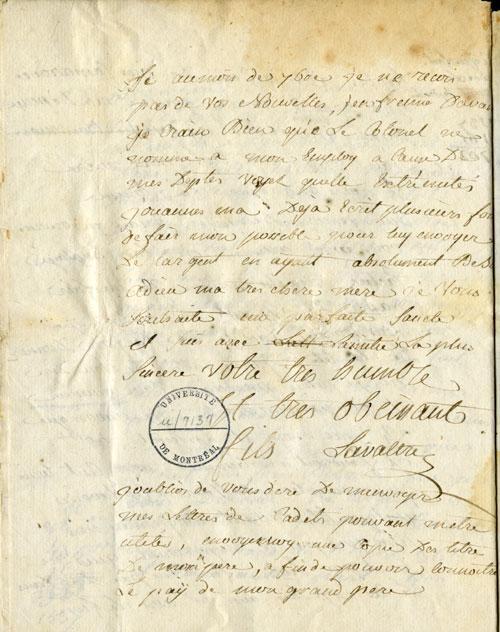 Si au mois de 7bre je ne reçois
pas de vos Nouvelles, d'avan
je crain Bien que Le Colonel ne
nomme a mon Employ a Cause De
mes Deptes voyé quelle Extremités
jouannes ma Déja Ecrit plusieurs foi
de fair mon possible pour luy envoyer
De Largent en ayant absolument Be
adieu ma tres chere mere je Vous
Souhaitte une parfaite Santé
et suis avec Lamitié La plus
Sincere Votre tres humble
Et tres obeissant
fils Lavaltrie
UNIVERSITÉ
u/7137/
DE MONTRÉAL
joubliois de vous dire De menvoyer
mes Lettres de Cadets pouvant metre
utiles, envoyez moy une Copie Des titre
De mon pere, a fin de pouvoir connoitre
Le païs de mon grand pere